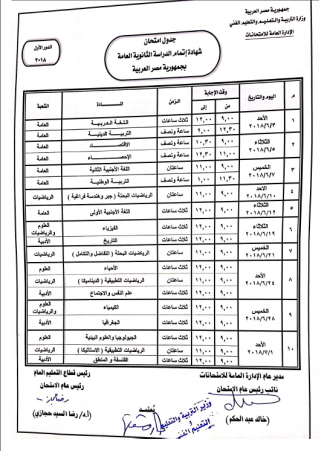 جمهورية مصر العربية
وزارة التربية والتعليم والتعليم الفني
الإدارة العامة للامتحانات
جدول امتحان
شهادة إتمام الدراسة الثانوية العامة
بجمهورية مصر العربية
الدور الأول
٢٠١٨
م اليوم والتاريخ وقت الإجابة الزمن المادة الشعبة
من إلى
١ الأحد ٢٠١٨/٦/٣ ٩,٠٠ ١٢,٠٠ ثلاث ساعات اللغة العربية العامة
١٢,٣٠ ٢,٠٠ ساعة ونصف التربية الدينية العامة
٢ الثلاثاء ٢٠١٨/٦/٥ ٩,٠٠ ١٠,٣٠ ساعة ونصف الاقتصاد العامة
١١,٠٠ ١٢,٣٠ ساعة ونصف الإحصاء العامة
٣ الخميس ٢٠١٨/٦/٧ ٩,٠٠ ١١,٠٠ ساعتان اللغة الأجنبية الثانية العامة
١١,٣٠ ١,٠٠ ساعة ونصف التربية الوطنية العامة
٤ الأحد ٢٠١٨/٦/١٠ ٩,٠٠ ١١,٠٠ ساعتان الرياضيات البحتة ( جبر وهندسة فراغية ) الرياضيات
٥ الثلاثاء ٢٠١٨/٦/١٢ ٩,٠٠ ١٢,٠٠ ثلاث ساعات اللغة الأجنبية الأولى العامة
٦ الثلاثاء ٢٠١٨/٦/١٩ ٩,٠٠ ١٢,٠٠ ثلاث ساعات الفيزياء العلوم والرياضيات
٩,٠٠ ١٢,٠٠ ثلاث ساعات التاريخ الأدبية
٧ الخميس ٢٠١٨/٦/٢١ ٩,٠٠ ١١,٠٠ ساعتان الرياضيات البحتة ( التفاضل والتكامل ) الرياضيات
٨ الأحد ٢٠١٨/٦/٢٤ ٩,٠٠ ١٢,٠٠ ثلاث ساعات الأحياء العلوم
٩,٠٠ ١١,٠٠ ساعتان الرياضيات التطبيقية ( الديناميكا ) الرياضيات
٩,٠٠ ١٢,٠٠ ثلاث ساعات علم النفس والاجتماع الأدبية
٩ الخميس ٢٠١٨/٦/٢٨ ٩,٠٠ ١٢,٠٠ ثلاث ساعات الكيمياء العلوم والرياضيات
٩,٠٠ ١٢,٠٠ ثلاث ساعات الجغرافيا الأدبية
١٠ الأحد ٢٠١٨/٧/١ ٩,٠٠ ١٢,٠٠ ثلاث ساعات الجيولوجيا والعلوم البيئية العلوم
٩,٠٠ ١١,٠٠ ساعتان الرياضيات التطبيقية ( الاستاتيكا ) الرياضيات
٩,٠٠ ١٢,٠٠ ثلاث ساعات الفلسفة والمنطق الأدبية
مدير عام الإدارة العامة للامتحانات
نائب رئيس عام الامتحان
(خالد عبد الحكم)
رئيس قطاع التعليم العام
رئيس عام الامتحان
(أ.د/ رضا السيد حجازي)
يعتمد
وزير التربية والتعليم
والتعليم الفني